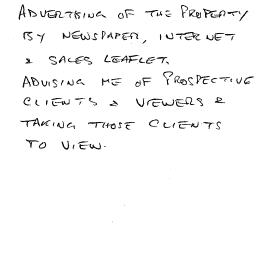 ADVERTISING OF THE PROPERTY
BY NEWSPAPER, INTERNET
& SALES LEAFLET.
ADVISING ME OF PROSPECTIVE
CLIENTS & VIEWERS &
TAKING THOSE CLIENTS
TO VIEW.